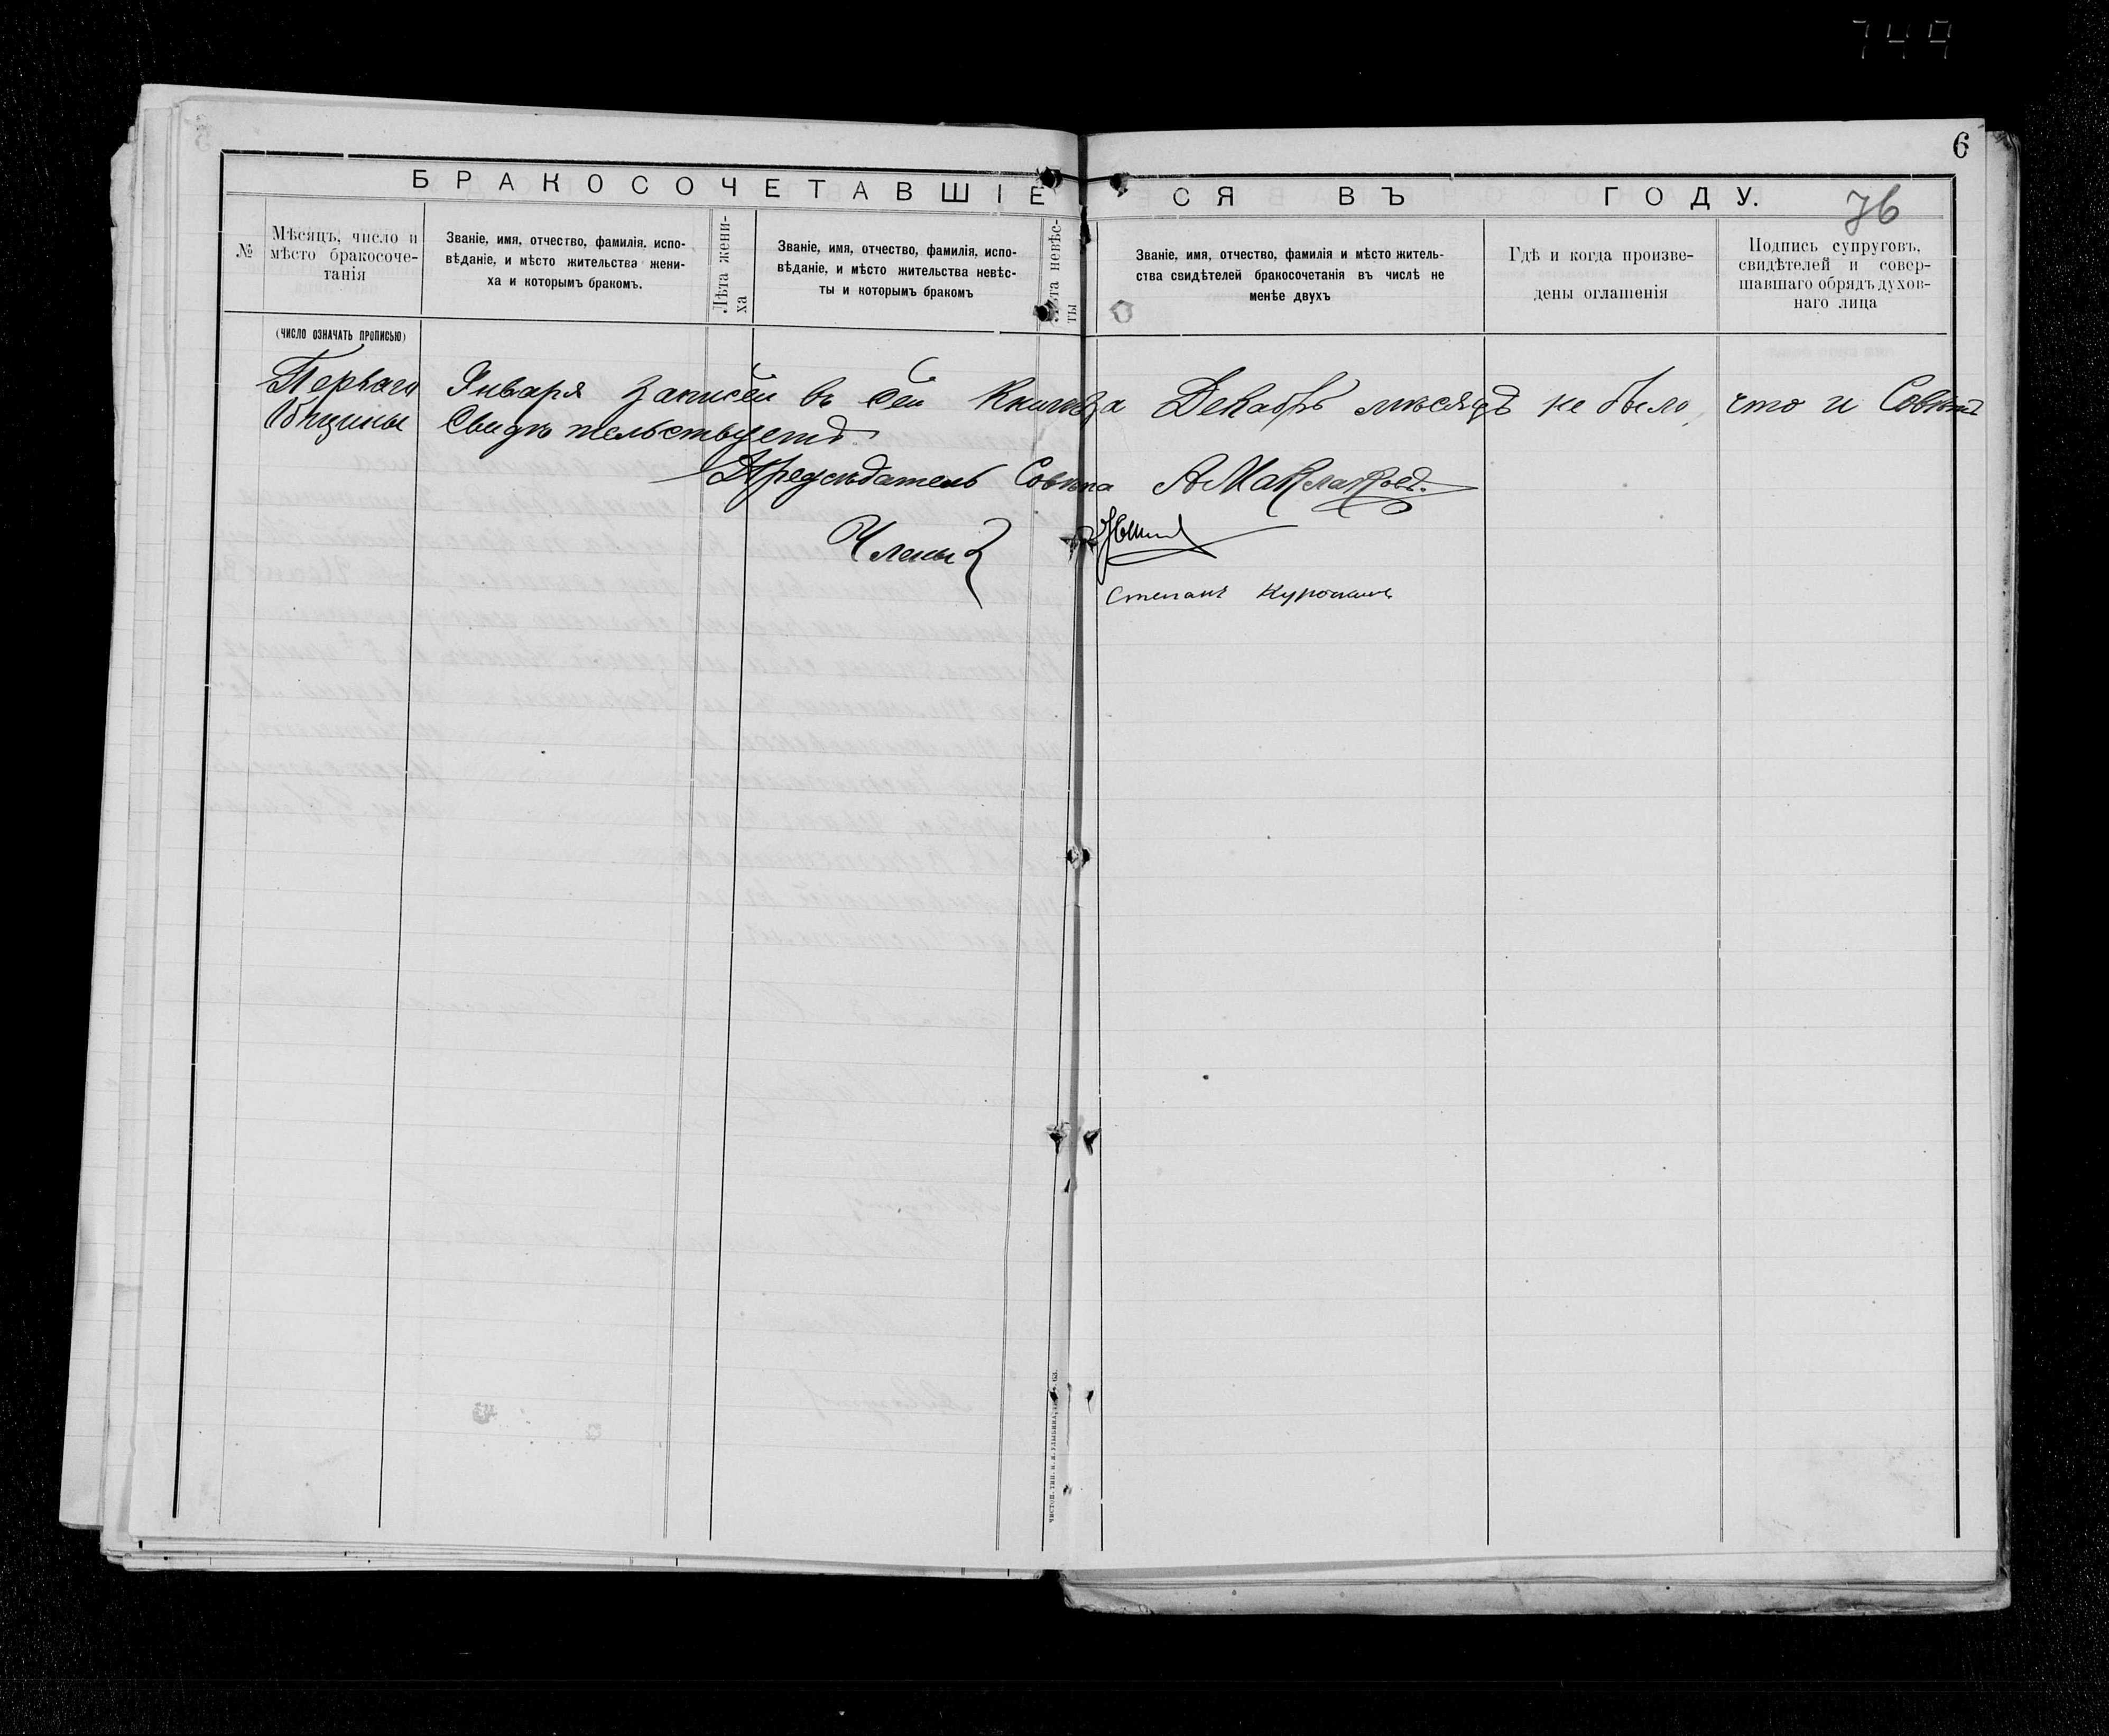 749
6
БРАКОСОЧЕТАВШІЕСЯ ВЪ ГОДУ.
76
№
Мѣсяцъ, число и
мѣсто бракосоче-
танія
Званіе, имя, отчество, фамилія, испо-
вѣданіе, и мѣсто жительства жени-
ха и которымъ бракомъ.
Лѣта жени-
ха
Званіе, имя, отчество, фамилія, испо-
вѣданіе, и мѣсто жительства невѣс-
ты и которымъ бракомъ
Лѣта невѣс-
ты
Званіе, имя, отчество, фамилія и мѣсто житель-
ства свидѣтелей бракосочетанія въ числѣ не
менѣе двухъ
Гдѣ и когда произве-
дены оглашенія
Подпись супруговъ,
свидѣтелей и совер-
шавшаго обрядъ духов-
наго лица
(число означать прописью)
Перваго Января записей въ сей Книге за Декабрь мѣсяцъ не было, что и Совѣтъ
Общины Свидѣтельствуетъ
Предсѣдатель Совѣта А Маклаковъ.
Члены
Степанъ
чистоп. тип.